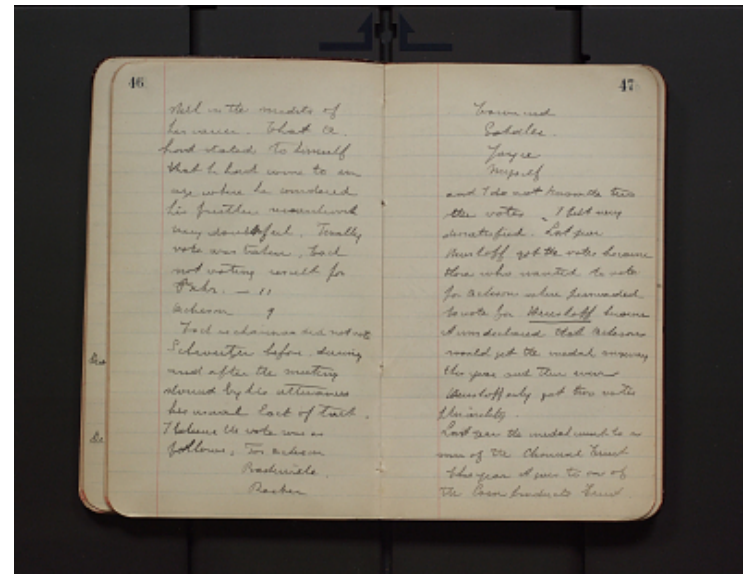 46
well in the
his career. That A.
had stated to himself
that he had come to an
age where he considered
his further research work
very doubtful. Finally
vote was taken, Loeb
not voting result for
— 11
Acheson 9
Loeb as chairman did not vote
before, during
and after the meeting
showed by his utterances
his usual lack of tact.
I believe the vote was as
follows, For Acheson
Baskerville
Parker
47
Townsend
Sadtler
Toyce
Myself
and I do not know the two
other votes. I felt very
dissatisfied. Last year
Herreshoff got the votes because
those who wanted to vote
for Acheson were persuaded
to vote for Herreshoff because
it was declared that Acheson
would get the medal anyway
this year and then even
Herreshoff only got two votes
plurality.
Last year the medal went to a
man of the Chemical Trust
this year it goes to one of
the Corn Products Trust